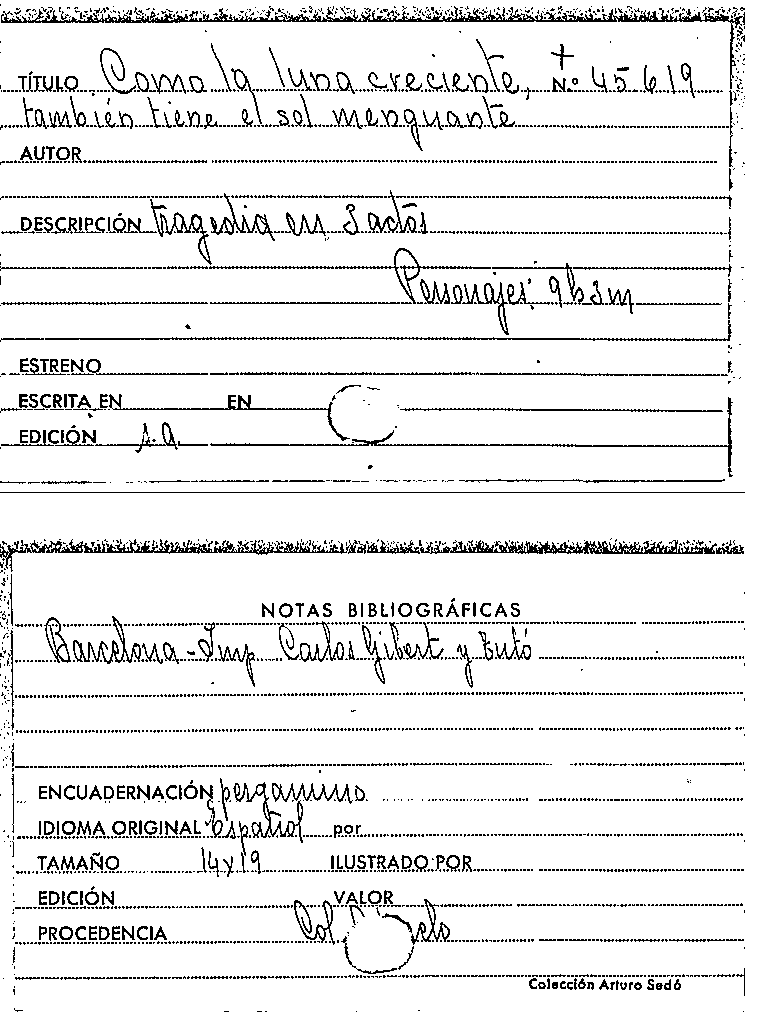 TÍTULO Como la luna creciente, Nº 45.619
también tiene el sol menguante
AUTOR
DESCRIPCIÓN tragedia en 3 actos
Personajes: 9h3m
ESTRENO
ESCRITA EN EN
EDICIÓN s.a.
NOTAS BIBLIOGRÁFICAS
Barcelona - Imp Carlos Gibert y Tutó
ENCUADERNACIÓN pergamino
IDIOMA ORIGINAL Español por
TAMAÑO 14x19 ILUSTRADO POR
EDICIÓN VALOR
PROCEDENCIA Col
Colección Arturo Sedó